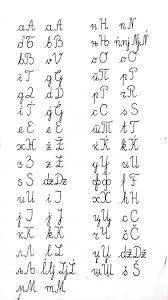 аА aA
бБ bB
вВ vV
гГ gG
дД dD
ѓЃ ǵǴ
еЕ eE
жЖ žŽ
зЗ zZ
ѕЅ dzDz
иИ iI
јЈ jJ
кК kK
лЛ lL
љЉ lj Lj Ĺ
мМ mM
нН nN
њЊ nj Nj Ń
оО oO
пП pP
рР rR
сС sS
тТ tT
ќЌ ḱḰ
уУ uU
фФ fF
хХ hH
цЦ cC
чЧ čČ
џЏ džDž
шШ šŠ